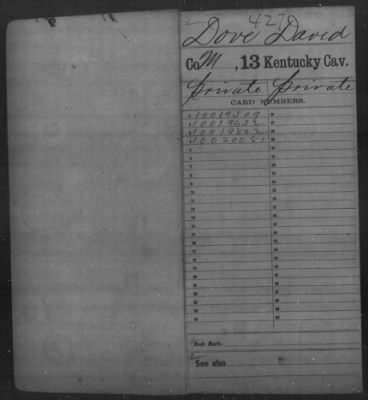 427
Dove David
Co M , 13 Kentucky Cav.
Private Private
CARD NUMBERS.
10019509
10019632
10019802
10020081
Book Mark:
See also